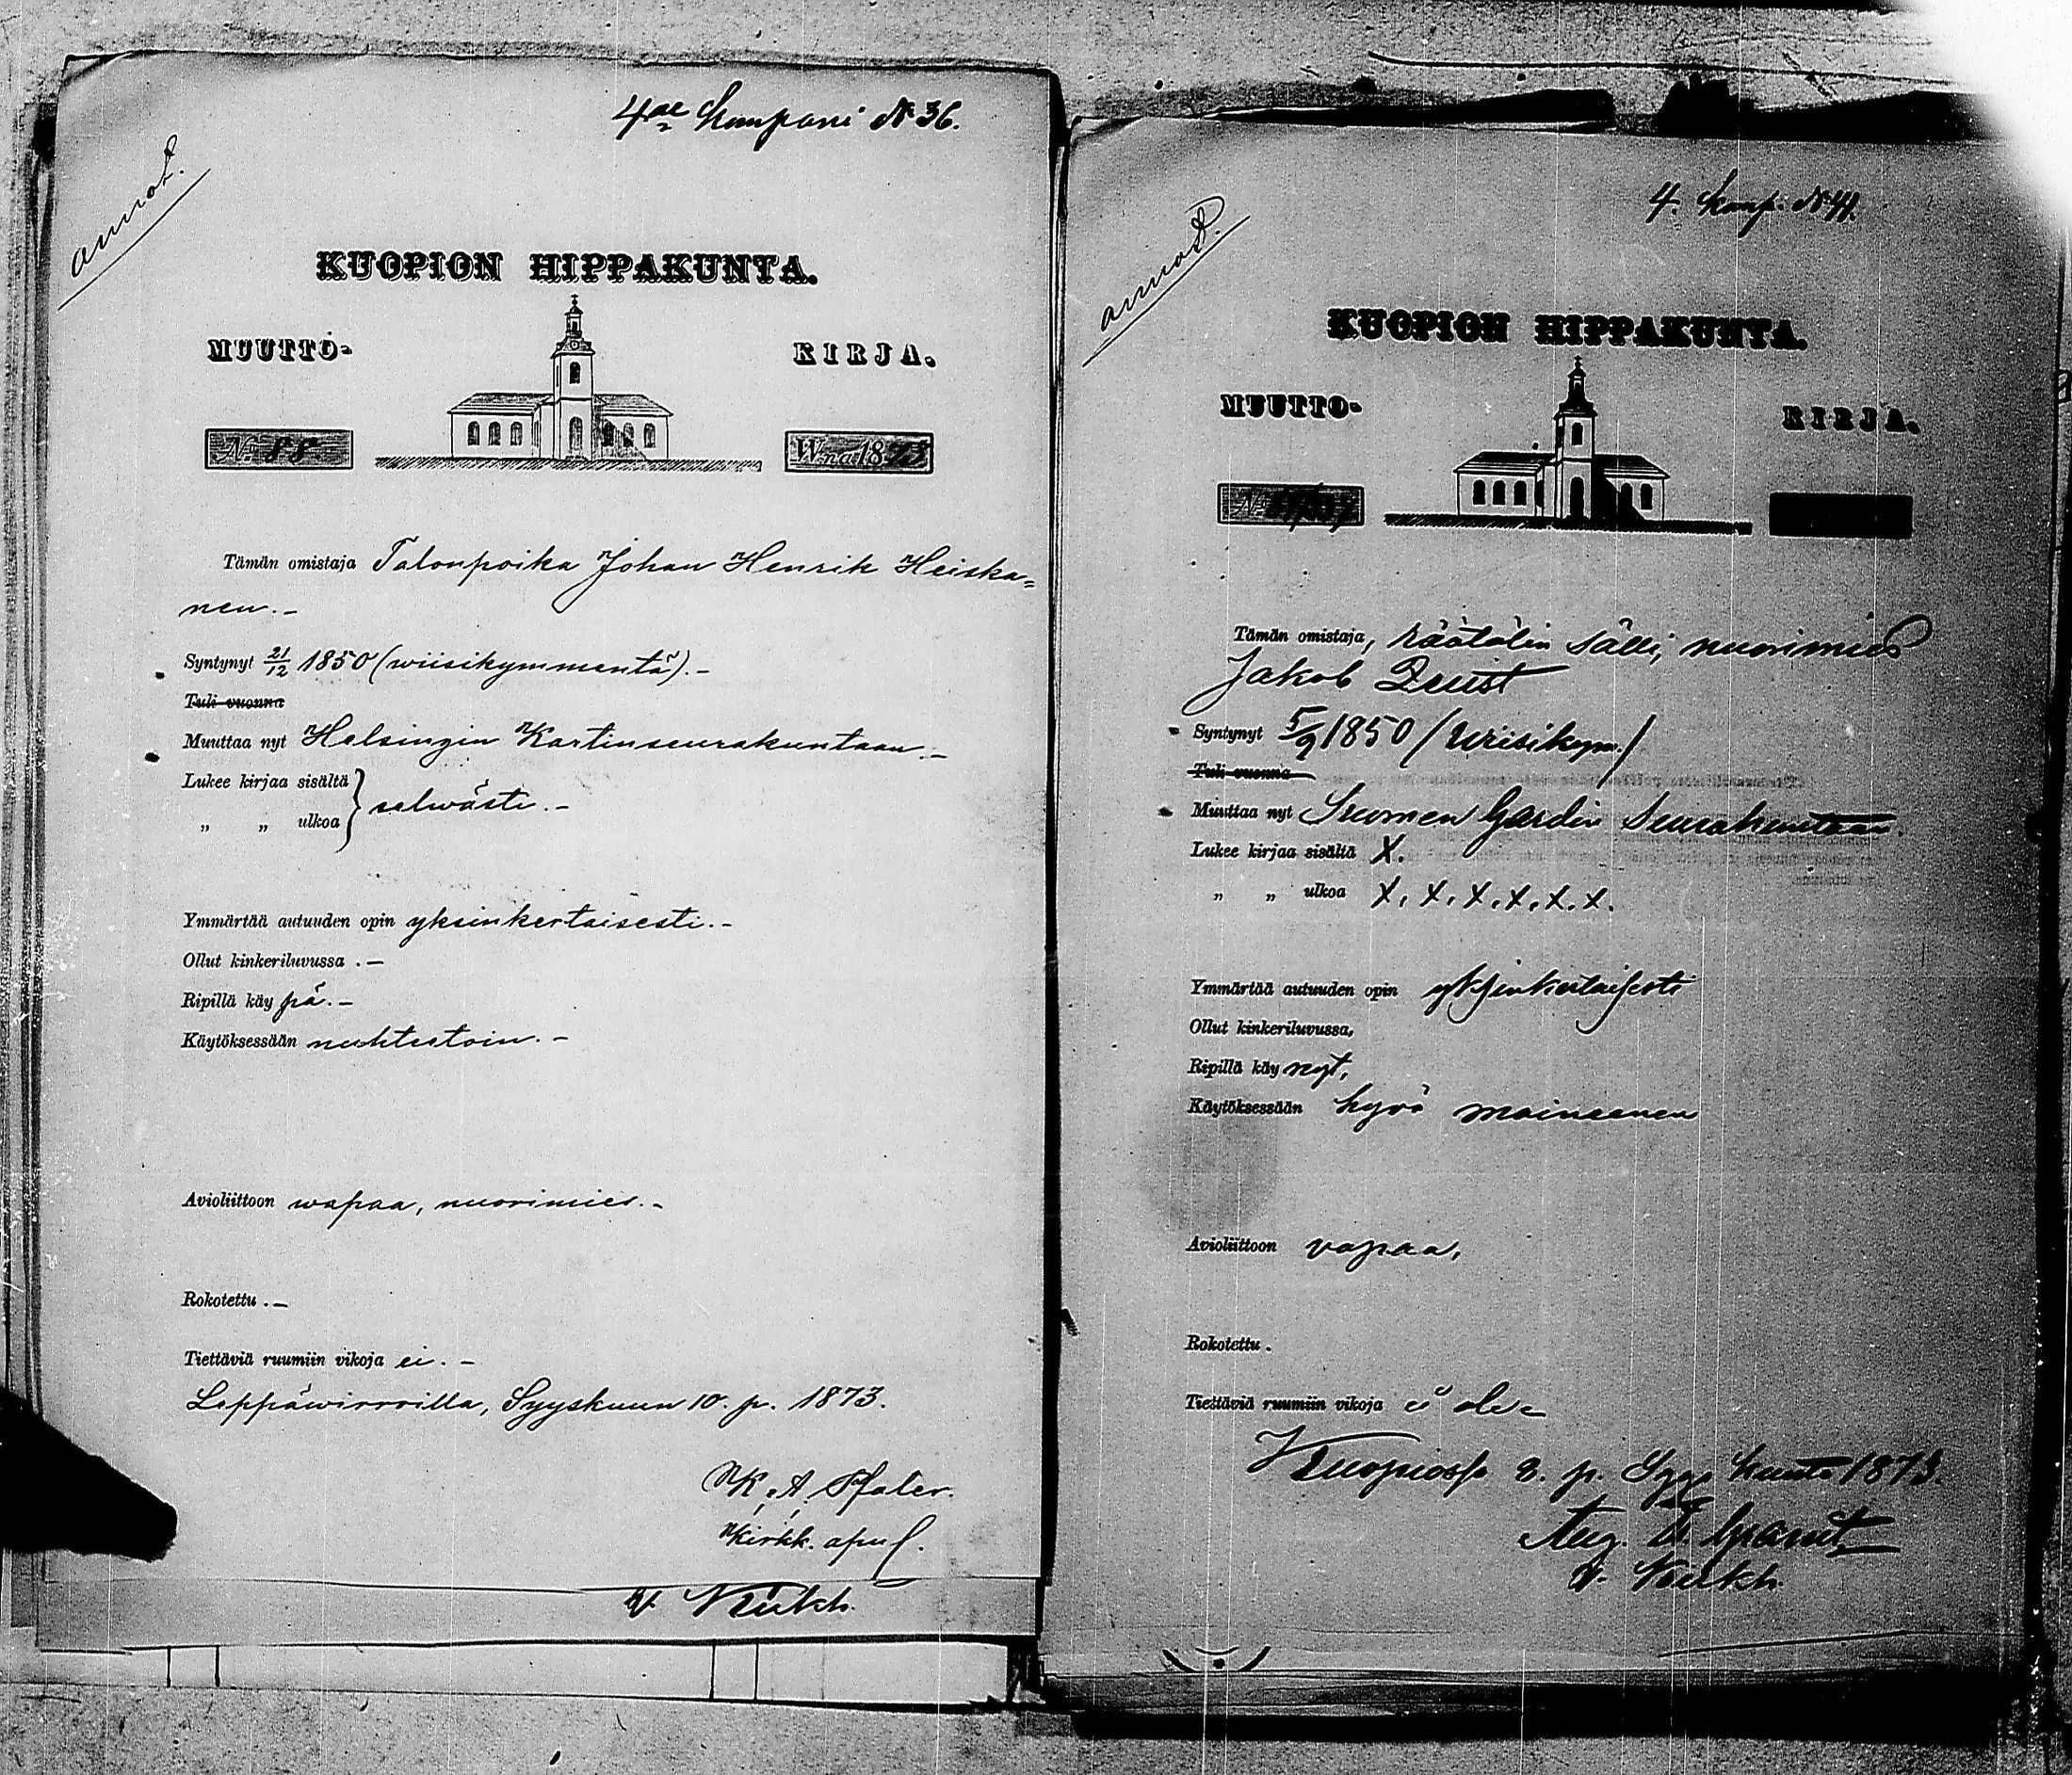 4de Kompani No 36.
annot.
KUOPION HIPPAKUNTA.
MUUTTO- KIRJA.
No. 88 W:na 1873
Tämän omistaja Talonpoika Johan Henrik Heiska=
nen.-
Syntynyt 21/12 1850 (wiisikymmentä).-
Tuli vuonna
Muuttaa nyt Helsingin Kartinseurakuntaan.-
Lukee kirjaa sisältä
selwästi.-
„ „ ulkoa
Ymmärtää autuuden opin yksinkertaisesti.-
Ollut kinkeriluvussa .-
Ripillä käy pä.-
Käytöksessään nuhtetoin.-
Avioliittoon wapaa, nuorimies.-
Rokotettu .-
Tiettäviä ruumiin vikoja ei.-
Leppäwirroilla, Syyskuun 10. p. 1873.
K. A. Pfaler.
Kirkk. apul.
V. Kirkh.
4. Komp. No 41.
annot.
KUOPION HIPPAKUNTA.
MUUTTO- KIRJA.
No.
Tämän omistaja, räätälin sälli, nuorimies
Jakob
Syntynyt 5/9 1850 / wiisikym./
Tuli vuonna
Muuttaa nyt Suomen Gardin Seurakuntaan.
Lukee kirjaa sisältä X.
„ „ ulkoa X, X, X, X, X. X.
Ymmärtää autuuden opin yksinkertaisesti
Ollut kinkeriluvussa,
Ripillä käy nyt,
Käytöksessään hyvä maineenen
Avioliittoon vapaa,
Rokotettu .
Tiettäviä ruumiin vikoja ei ole
Kuopiossa 8. p. Syys kuuta 1873.
Aug.
V. Kirkh.